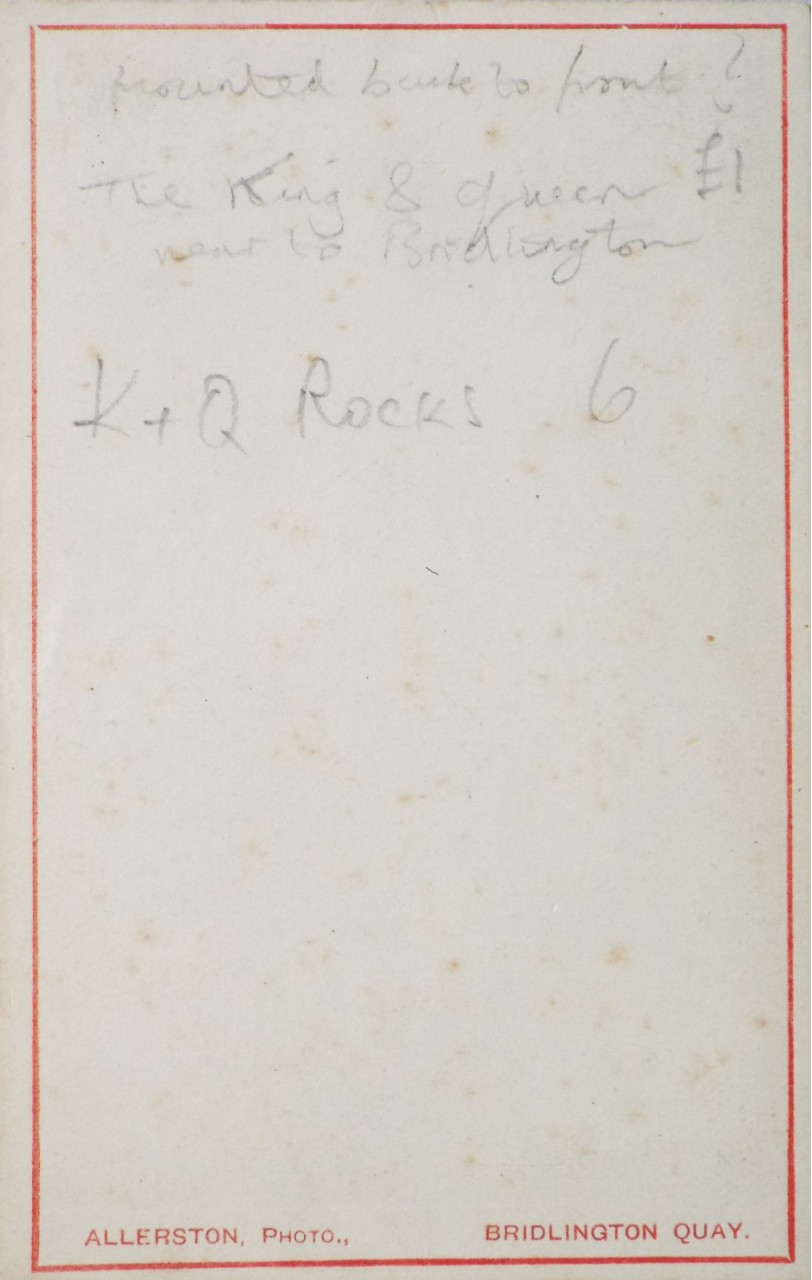 mounted back to front ?
The King & Queen £1
near to Bridlington
K + Q Rocks 6
ALLERSTON, PHOTO., BRIDLINGTON QUAY.